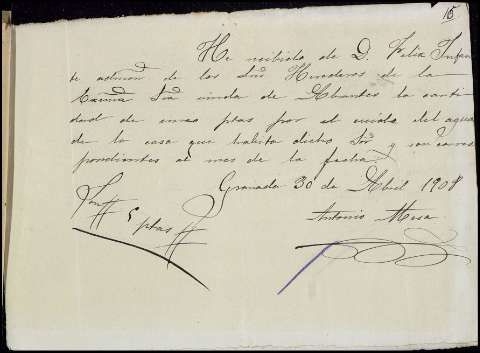 15
He recibido de D. Felix Infan
te admor de los Sres Herederos de la
Excma Sra viuda de Abantes la canti
dad de cinco ptas por el cuido del agua
de la casa que habita dicho Sor y son corres
pondientes al mes de la fecha.
Granada 30 de Abril 1908
Son # 5 ptas #
Antonio Mesa